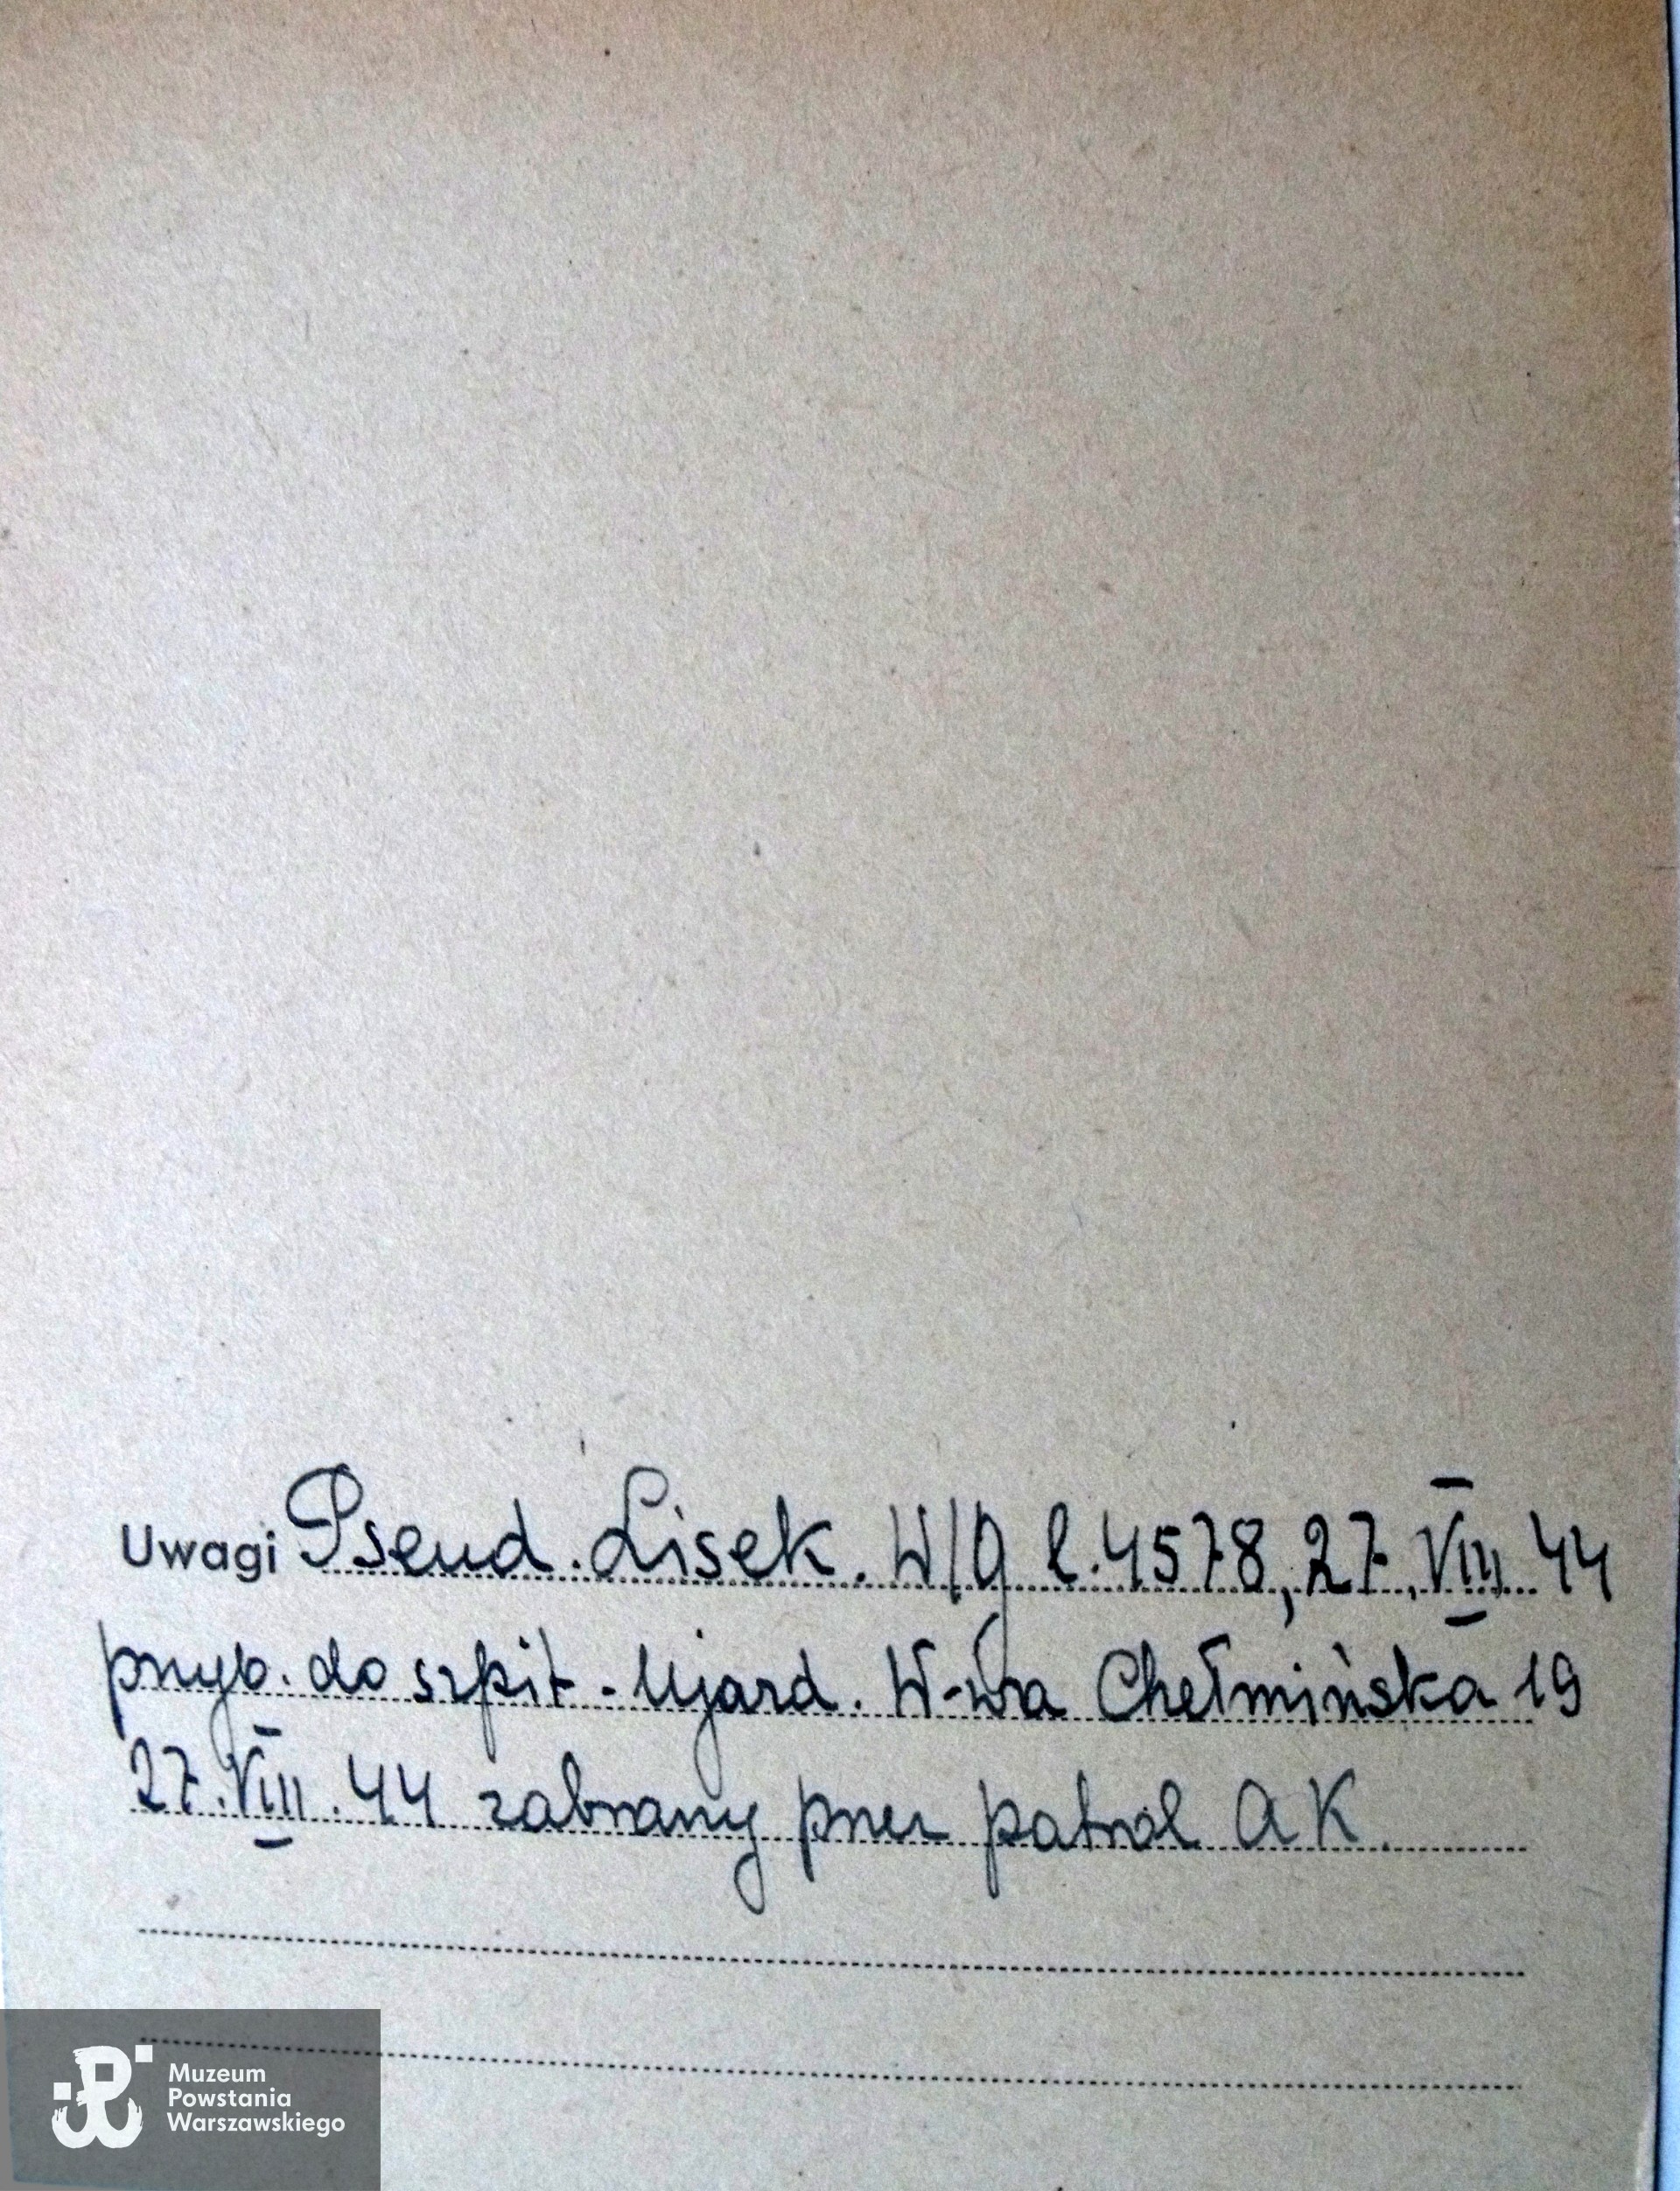 Uwagi Pseud. Lisek. W/g l. 4578, 27. VIII 44
przyb. do szpit - Ujazd. W-wa Chełmińska 19
27. VIII. 44 zabrany przez patrol AK.
Muzeum
Powstania
Warszawskiego